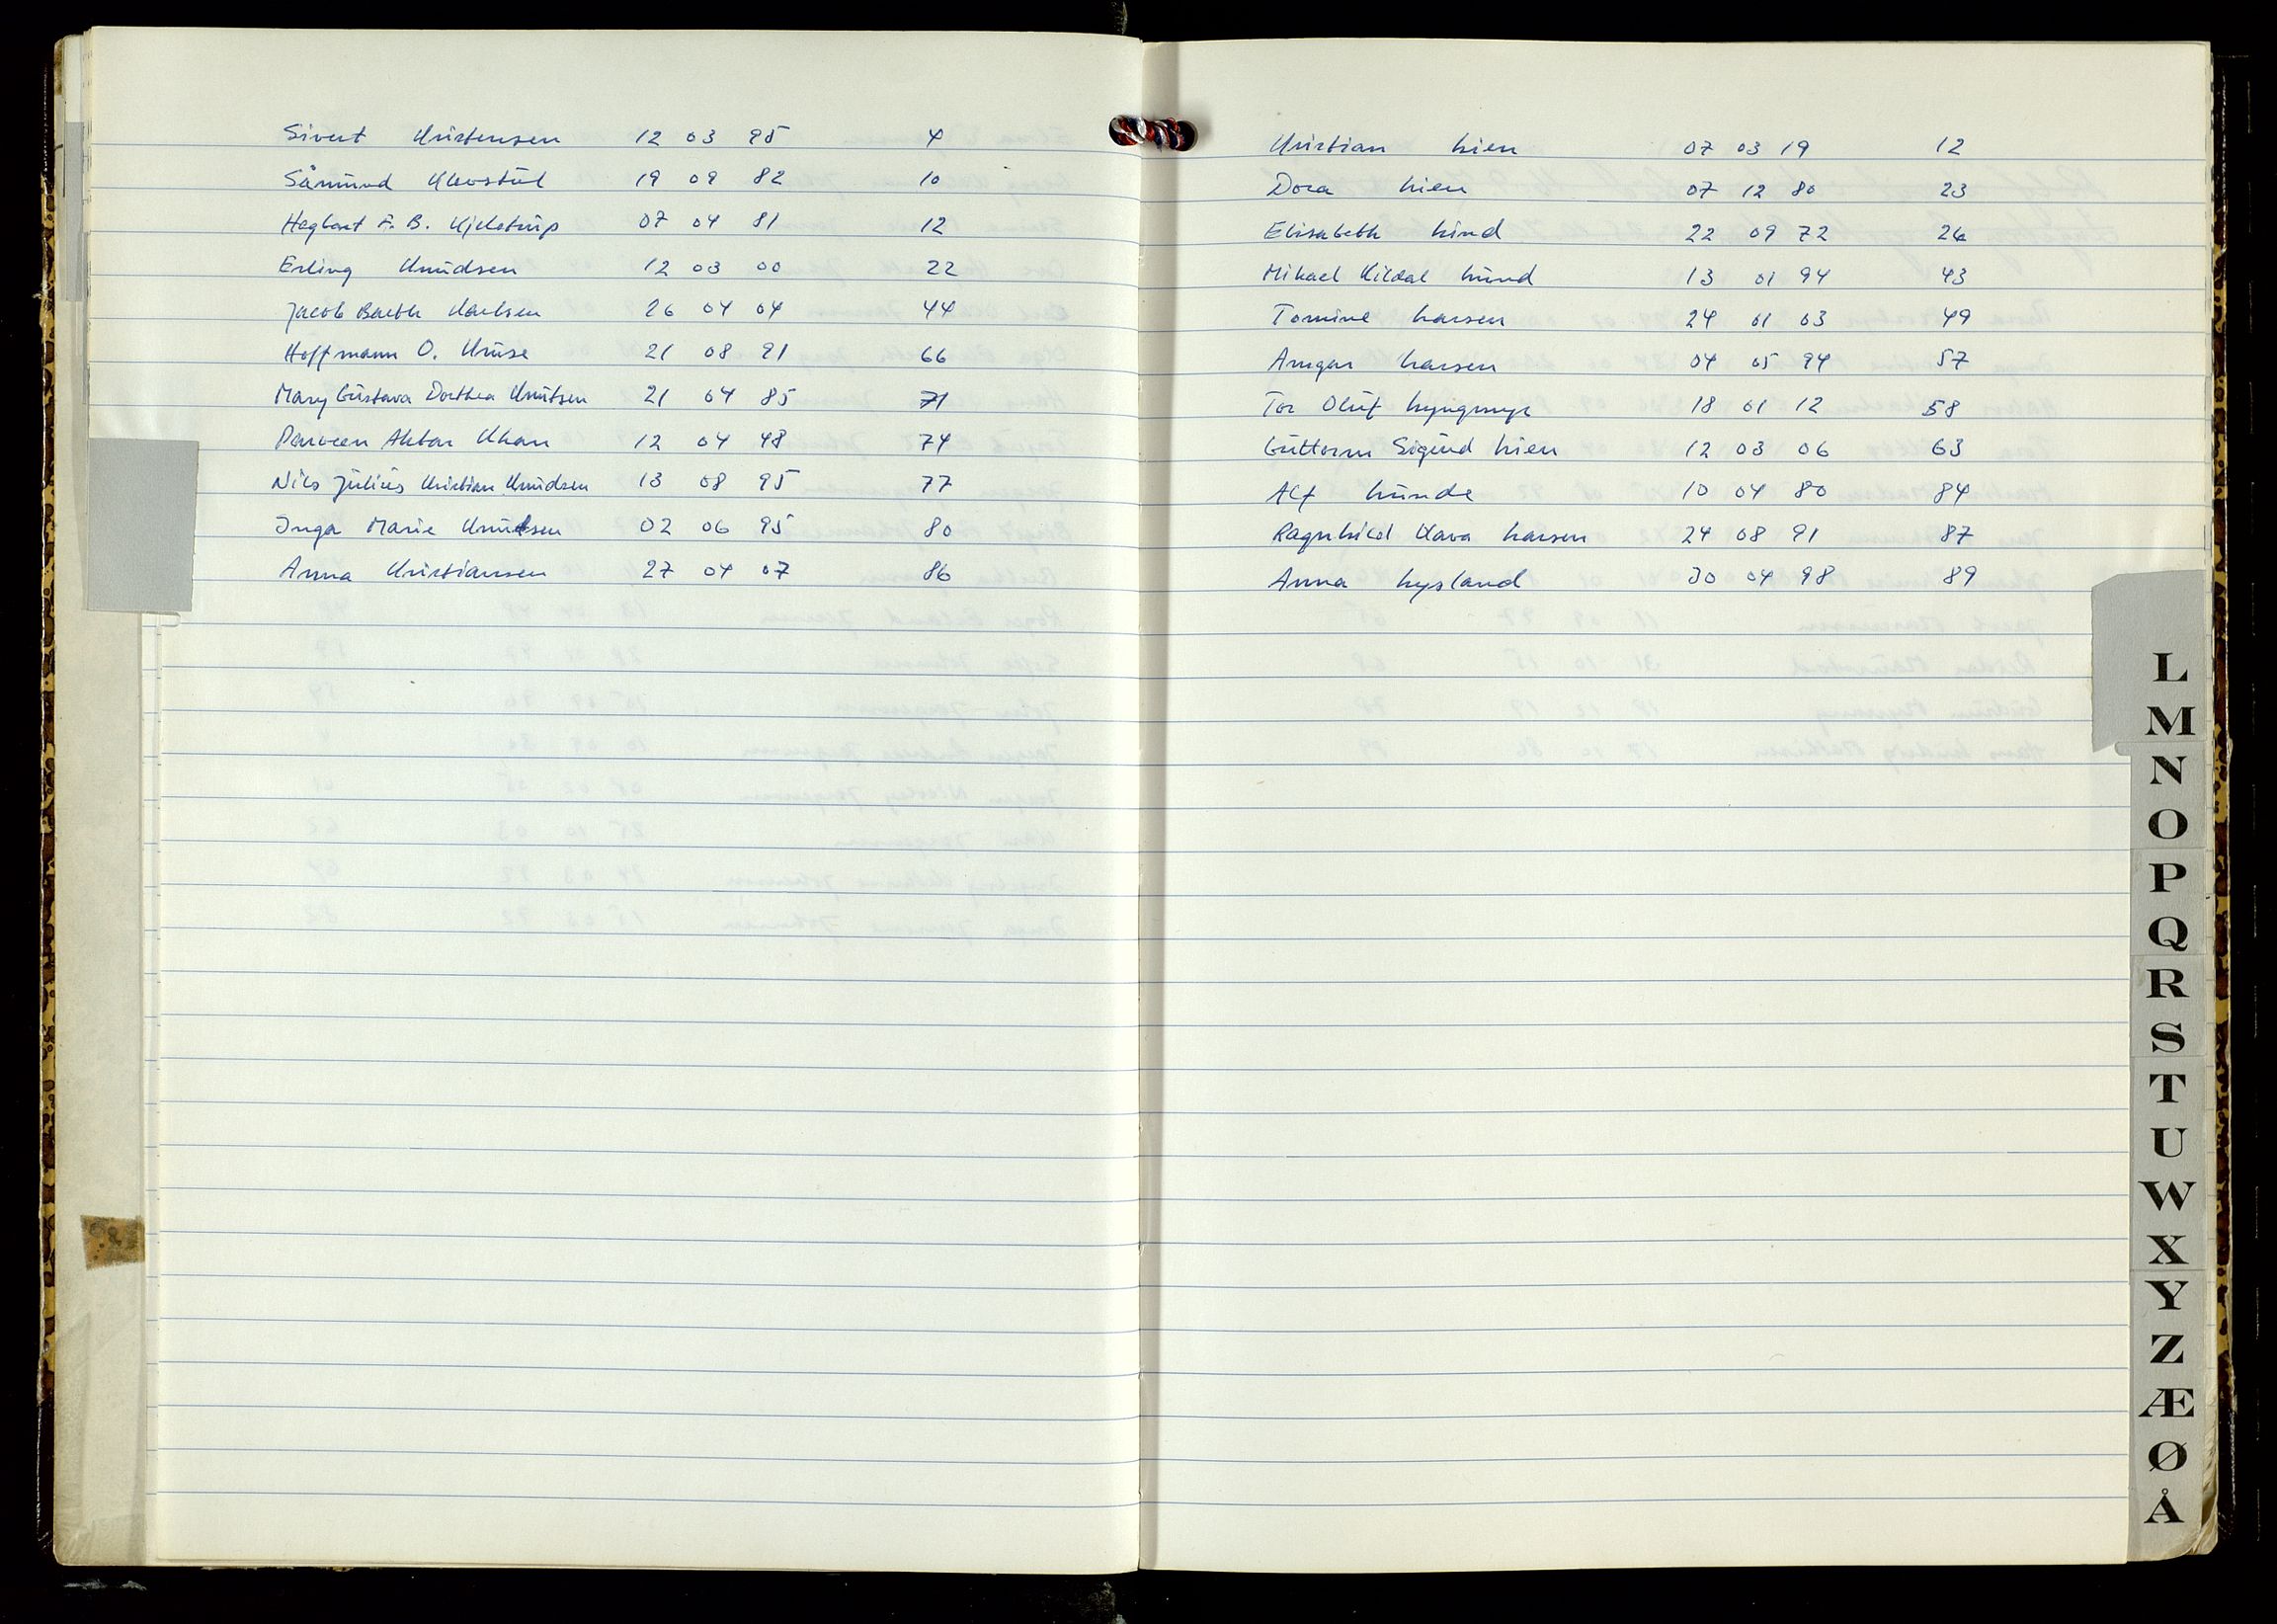 Sivert Kristensen 12 03 95 4
Sämund Klevstül 19 09 82 10
Hagbart F. B. Kjelstrüp 07 04 81 12
Erling Knüdsen 12 03 00 22
Jacob Barth Karlsen 26 04 04 44
Hoffmann O. Krüse 21 08 91 66
Mary Güstava Dorthea Knütsen 21 04 85 71
Parveen Akhtar Khan 12 04 48 74
Nils Jülius Kristian Knüdsen 13 08 95 77
Inga Marie Knüdsen 02 06 95 80
Anna Kristiansen 27 04 07 86
Kristian Lien 07 03 19 12
Dora Lien 07 12 80 23
Elisabeth Lind 22 09 72 26
Mikael Kildal Lünd 13 01 94 43
Tomine Larsen 24 01 03 49
Ansgar Larsen 04 05 94 57
Tor Olüf Lyngmyr 18 01 12 58
Güttorm Sigürd Lien 12 03 06 63
Alf Lünde 10 04 80 84
Ragnhild Klara Larsen 24 08 91 87
Anna Lysland 30 04 98 89
L
M
N
O
P
Q
R
S
T
U
W
X
Y
Z
Æ
Ø
Å